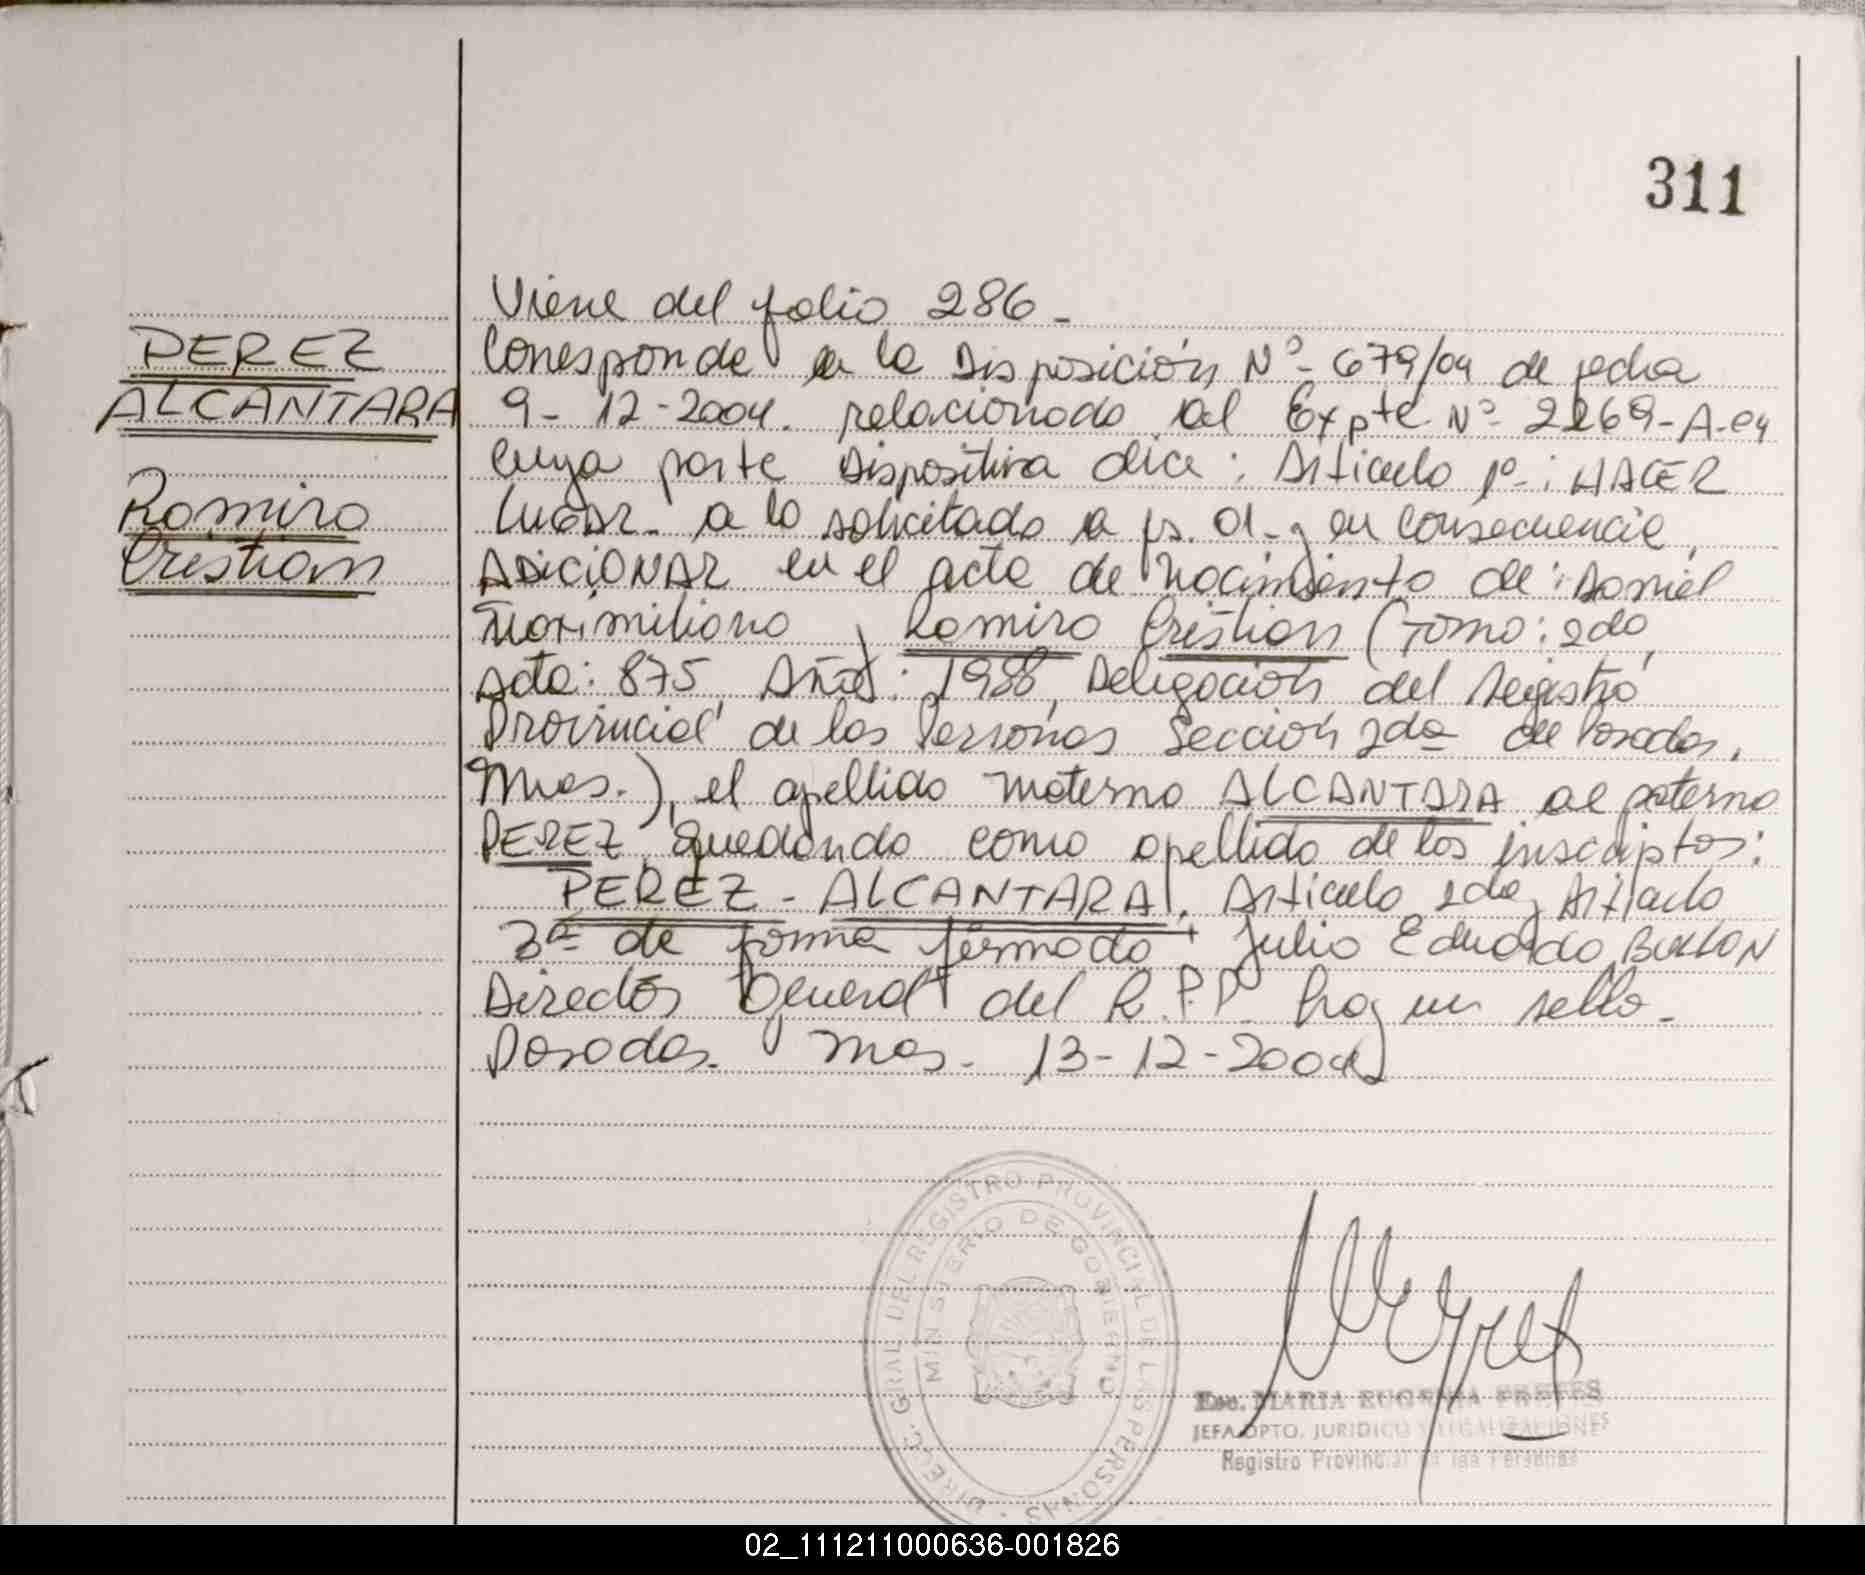 311
Viene del folio 286.-
PEREZ
ALCANTARA
Romiro
Cristian
Corresponde a la Disposición Nº- 679/04 de fecha
9-12-2004. relacionado al Expte Nº 2269-A-04
cuya parte Dispositiva dice: Articulo 1º-: HACER
LUGAR- a lo solicitado a fs. 01- y en consecuencia,
ADICIONAR en el acta de nacimiento de: Daniel
Maximiliano y Romiro Cristian (Tomo: 2do,
Acta: 875, Año: 1988, Delegación del Registro
Provincial de las Personas Sección 2da de Posadas,
Mnes.), el apellido materno ALCANTARA al paterno
PEREZ, quedando como apellido de los inscriptos:
PEREZ - ALCANTARA. Articulo 2do y Articulo
3º de forma firmado Julio Eduardo
Director General del R.P.P. hay un sello.-
Posadas. Mnes. 13-12-2004
DIRECC. GRAL. DEL REGISTRO PROVINCIAL DE LAS PERSONAS
MINISTERIO DE GOBIERNO
Esc. MARIA EUGENIA FRETES
JEFA DPTO. JURIDICO Y LEGALIZACIONES
Registro Provincial de las Personas
02_111211000636-001826